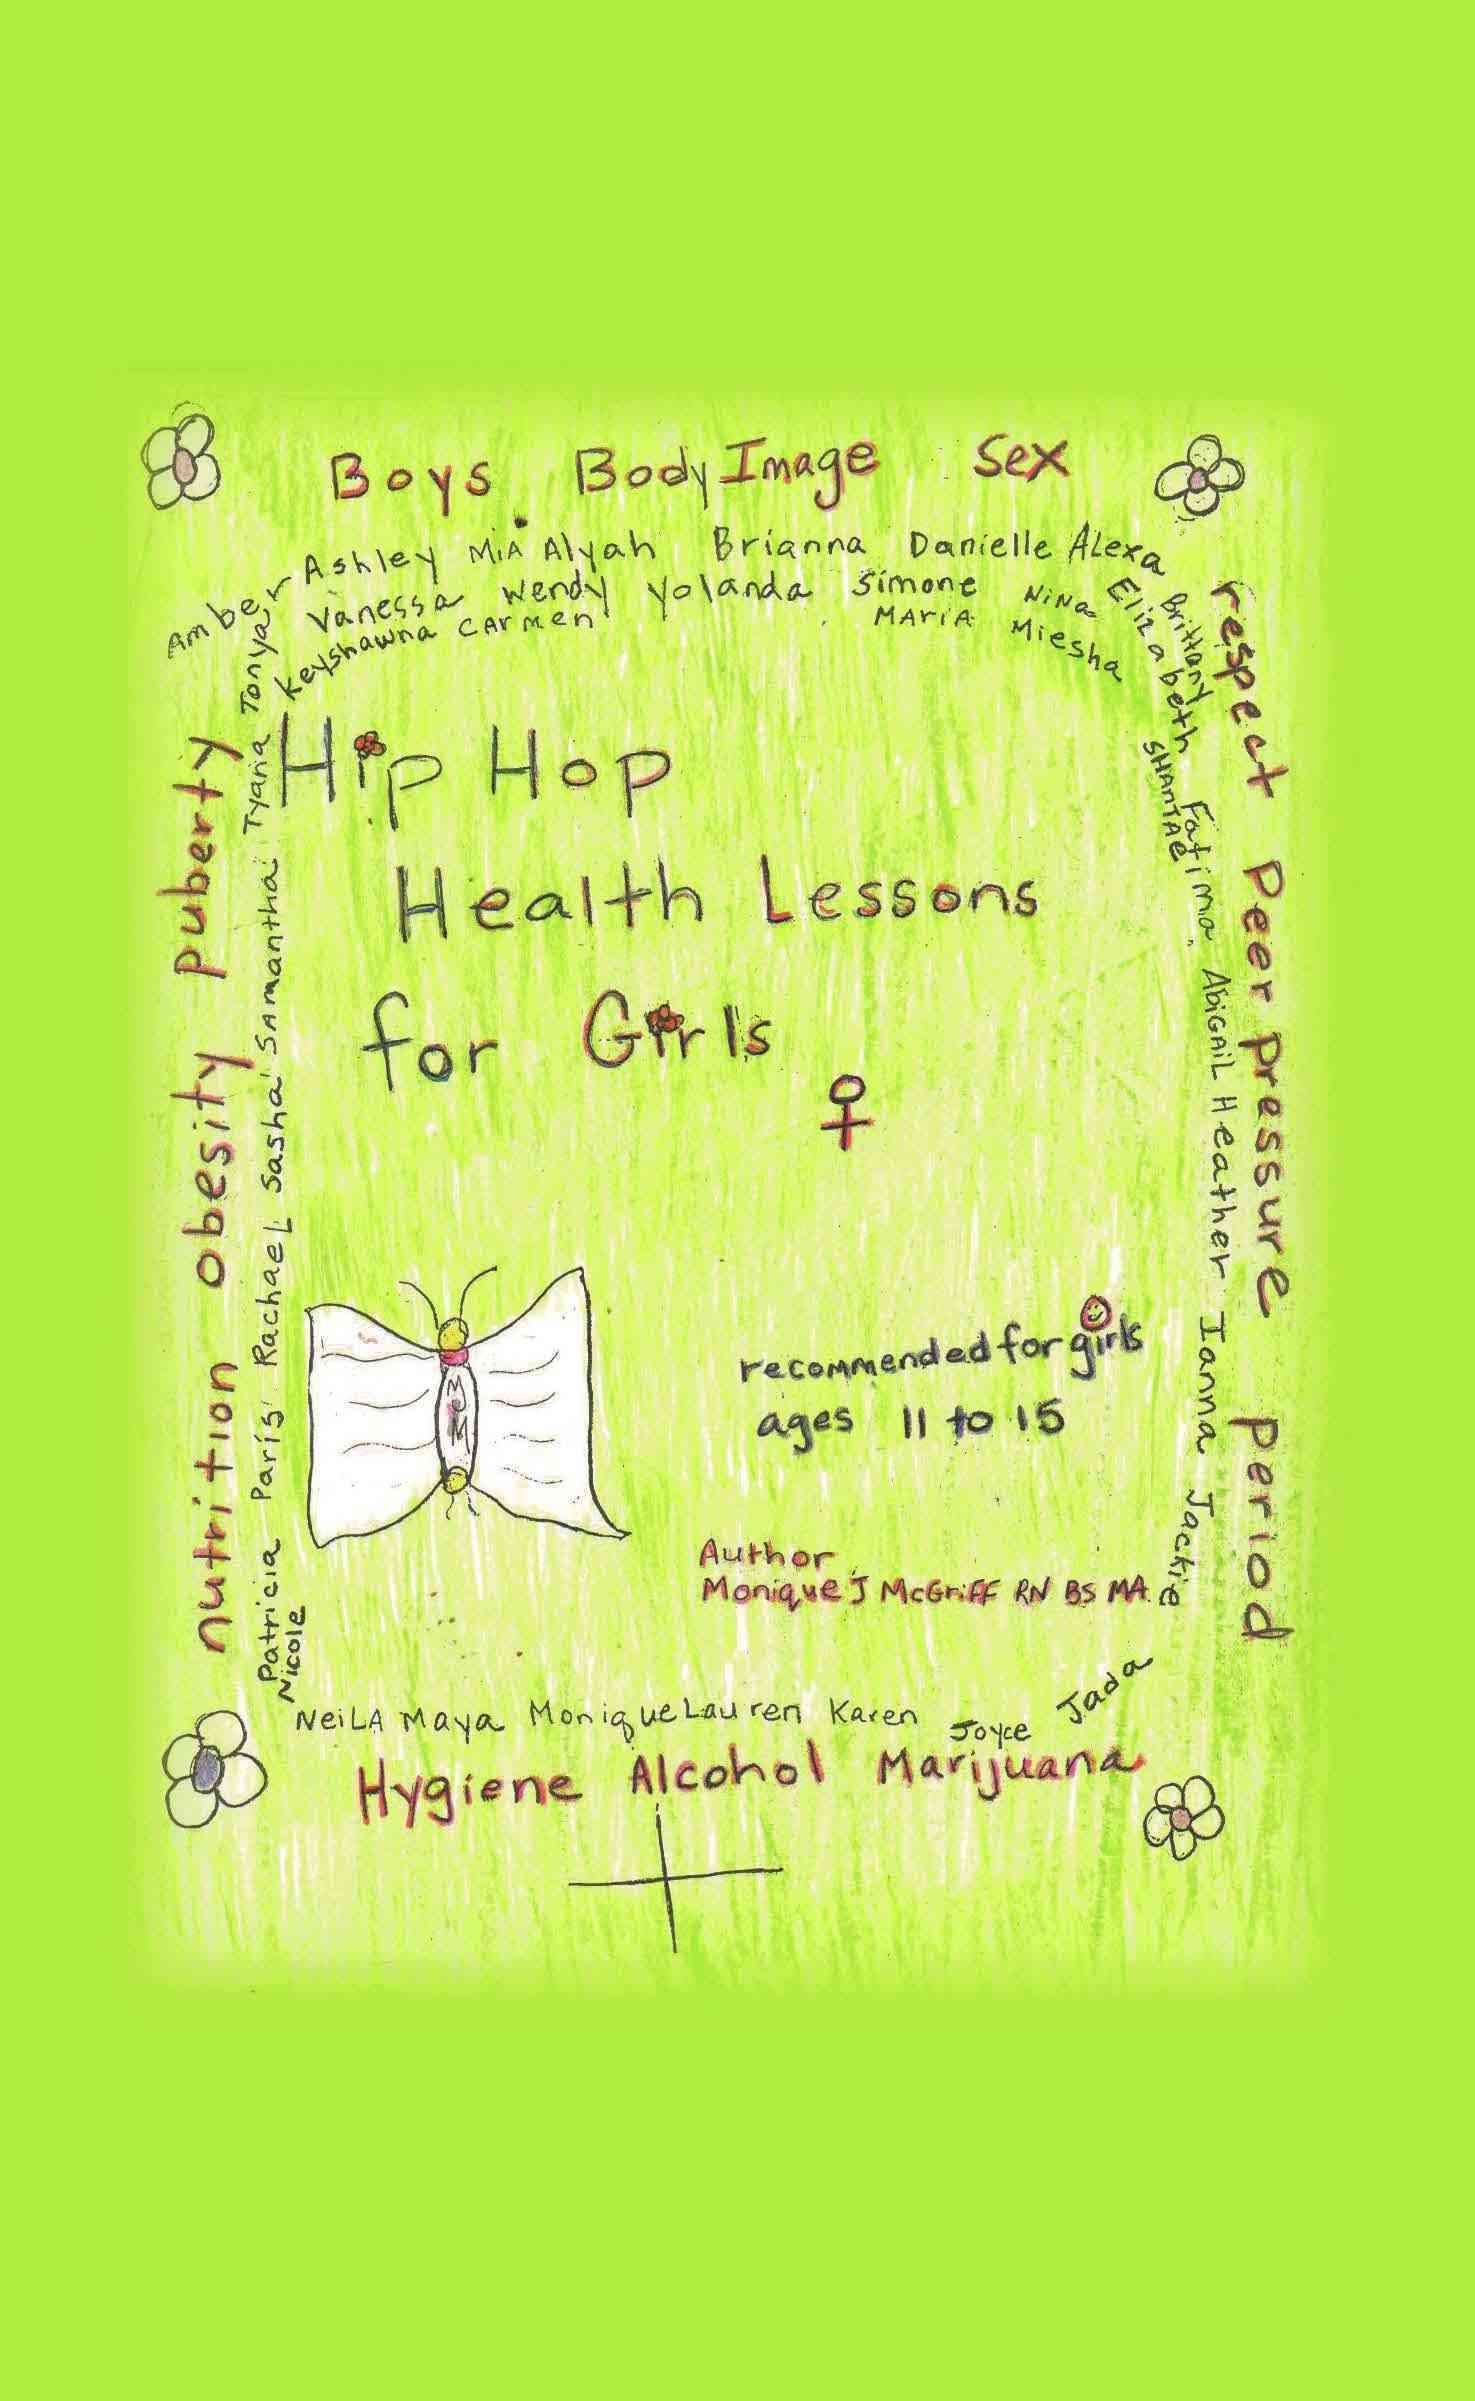 Boys Body Image Sex
Amber Ashley MiA Alyah Brianna Danielle Alexa
Vanessa Wendy Yolanda Simone Nina Elizabeth Brittany
Keyshawna CArmen MAriA Miesha
SHANTAE Fatima AbiGAiL Heather Ianna Jackie
respect Peer Pressure period
nutrition obesity puberty
Patricia Paris Rachael Sasha SAmantha Tyana Tonya
Nicole
Hip Hop
Health Lessons
for Girls
MJM
recommended for girls
ages 11 to 15
Author
Monique J McGriff RN BS MA
NeiLA Maya Monique Lauren Karen Joyce Jada
Hygiene Alcohol Marijuana